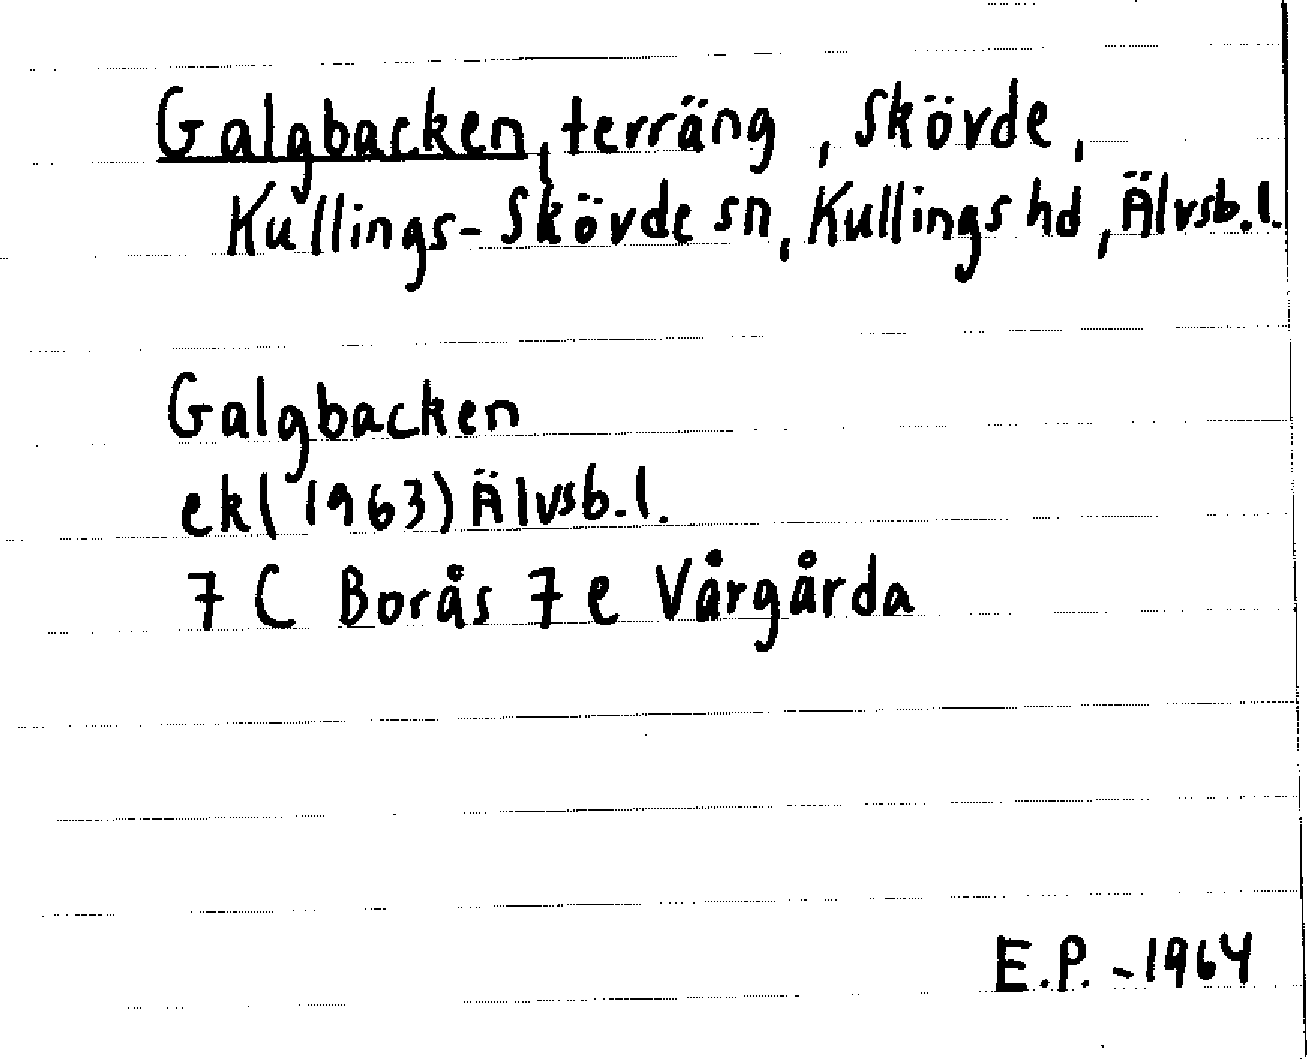 Galgbacken, terräng, Skövde,
Kullings-Skövde sn, Kullings hd, Älvsb.l.
Galgbacken
ek(1963) Älvsb.l.
7 C Borås 7 e Vårgårda
E.P. -1964